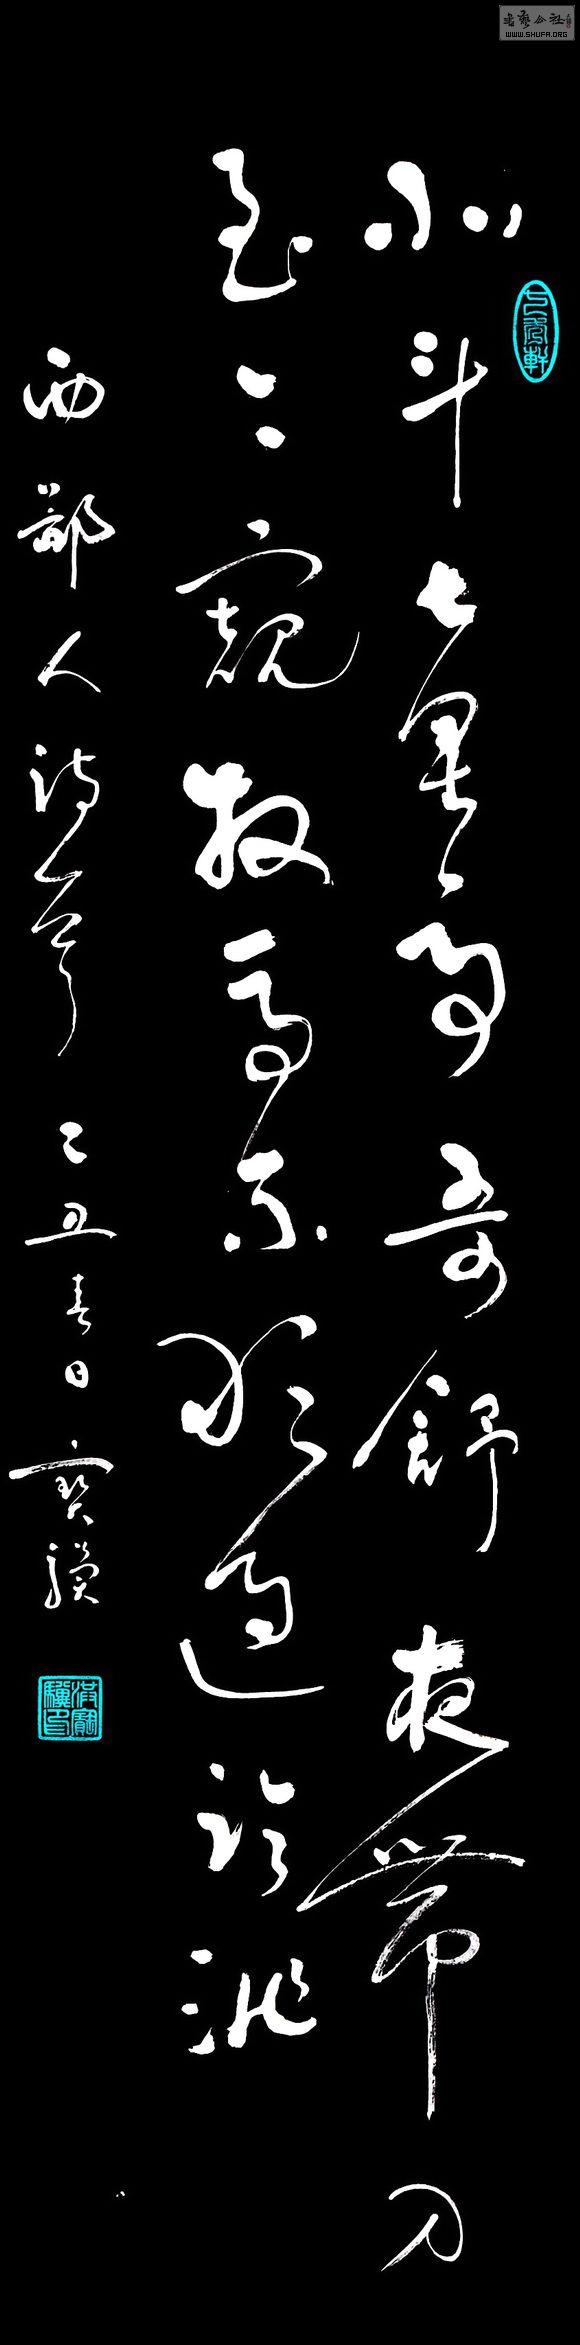 北斗七星高哥舒夜带刀
至今窥牧马不敢过临洮
西鄙人诗一首 己丑春日 宝骥
WWW.SHUFA.ORG